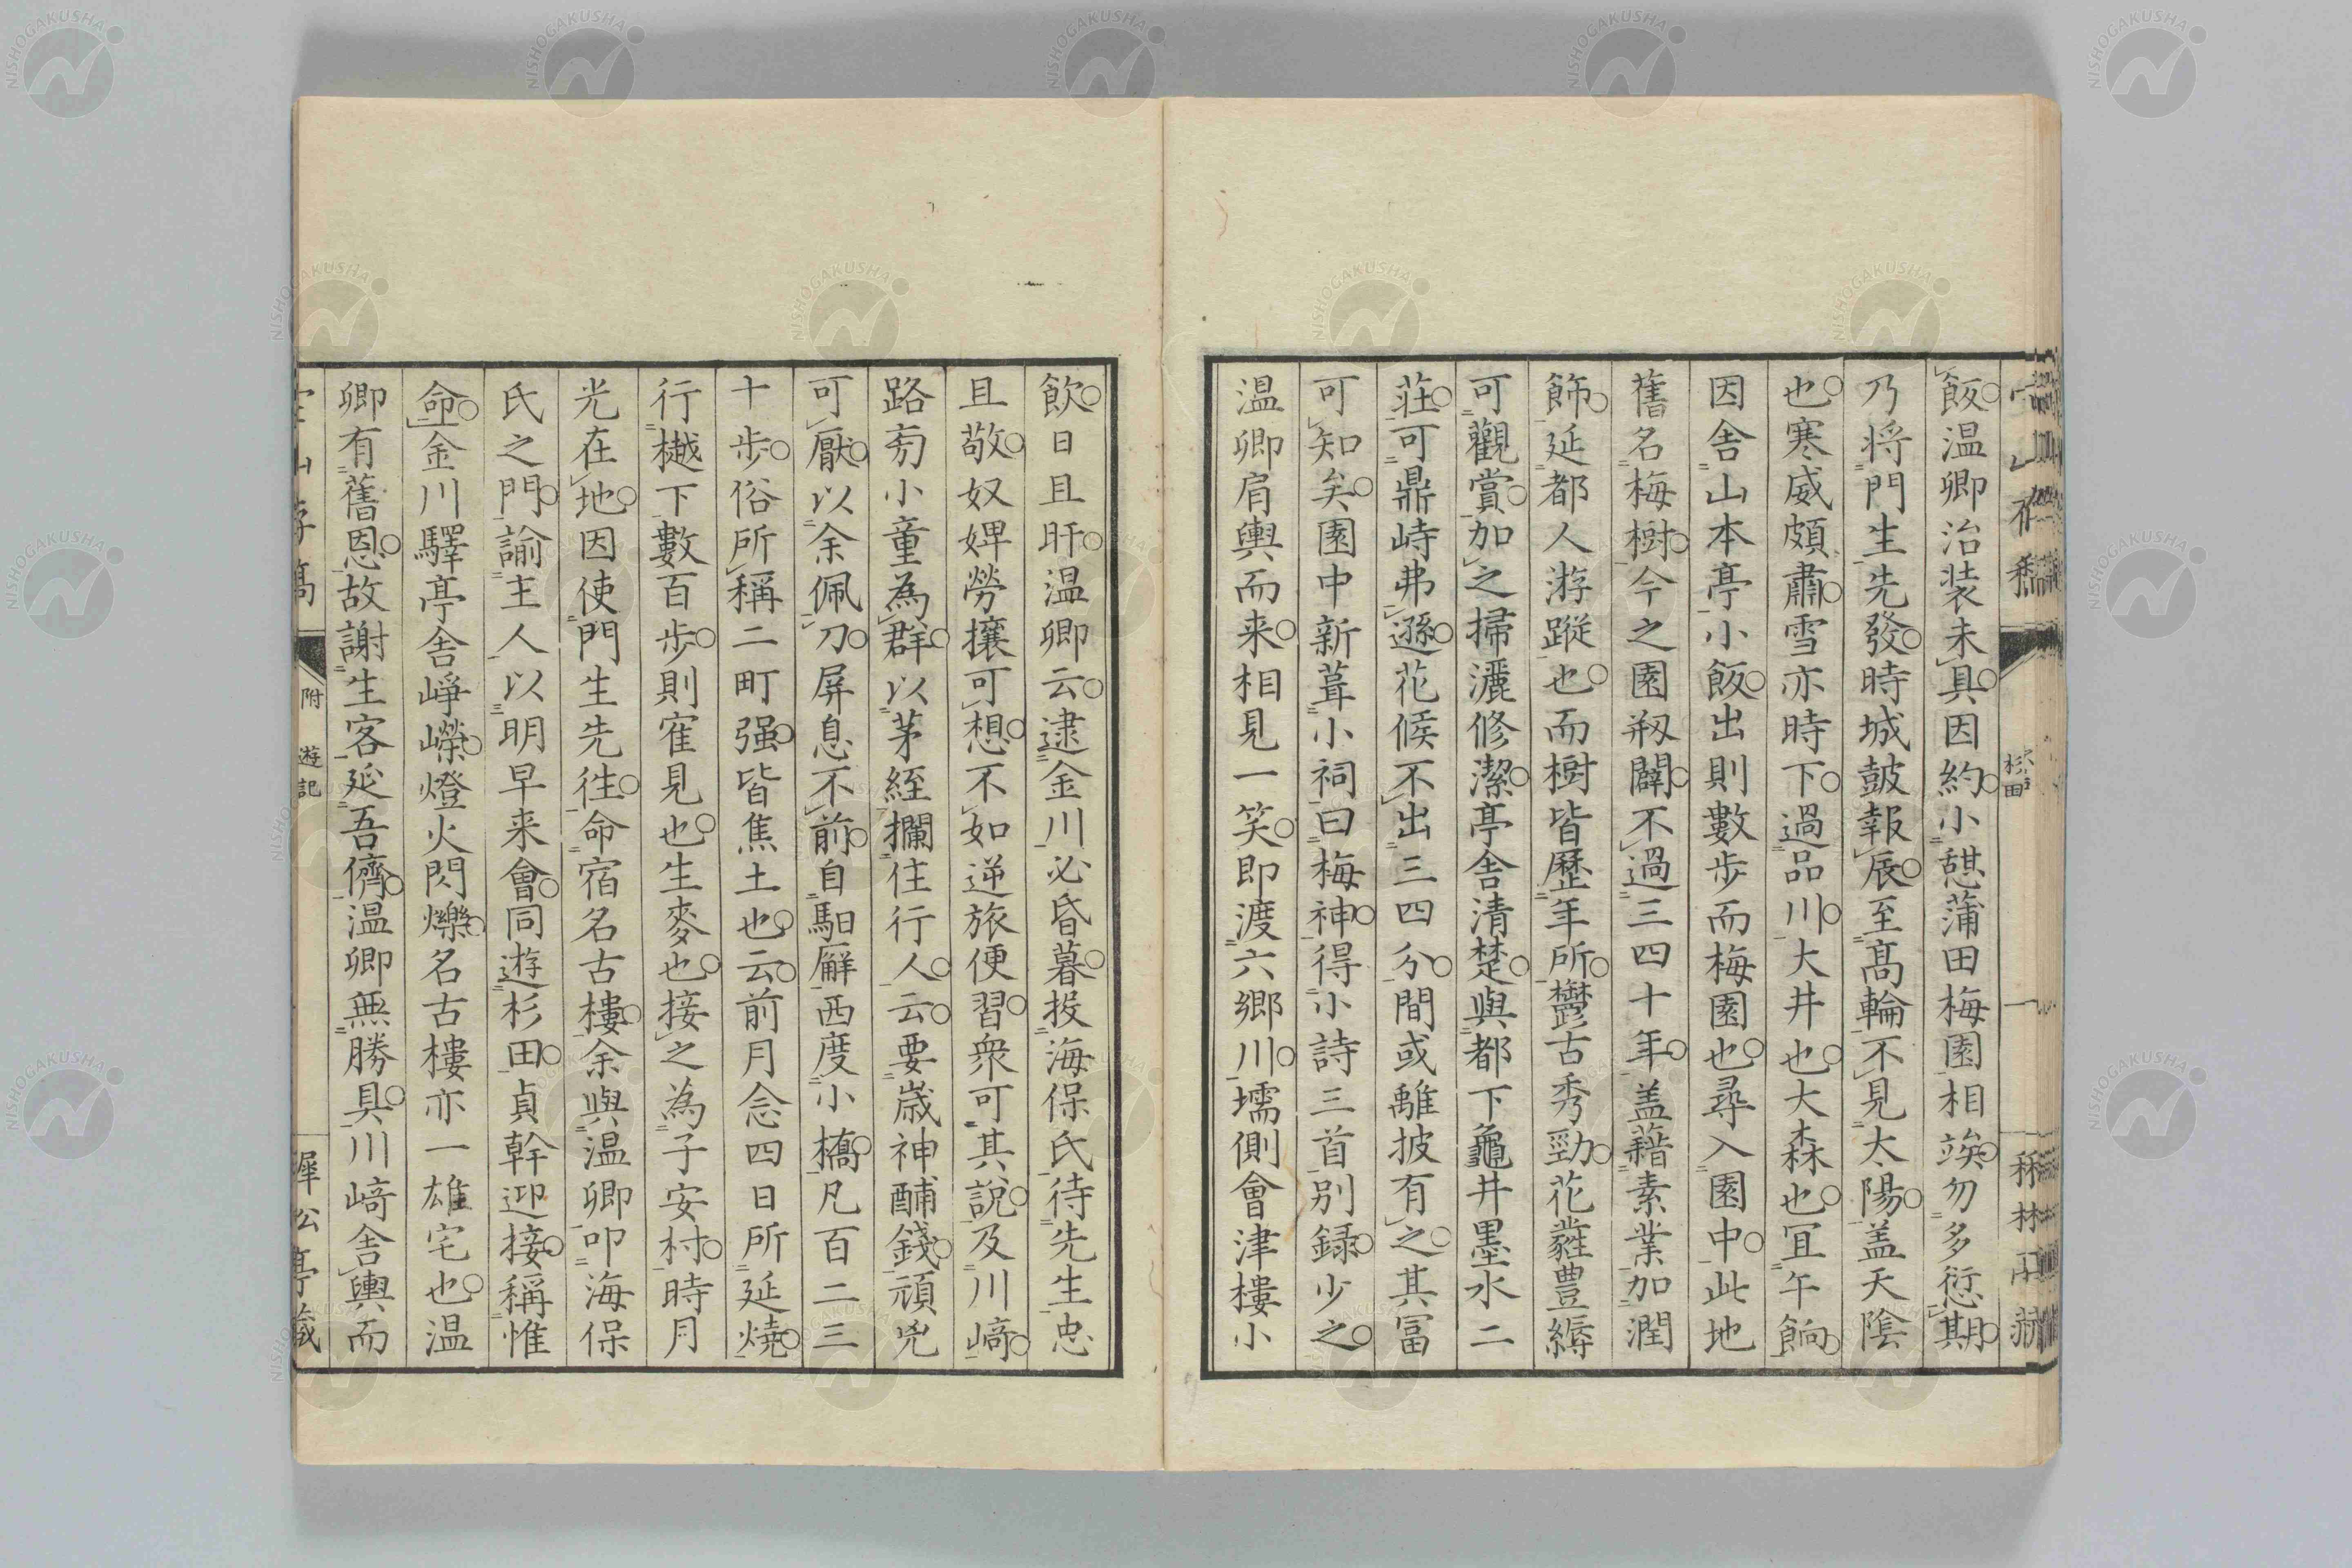 飯温卿治装未具因約小憇蒲田梅園相竢勿多愆期
乃将門生先發時城皷報辰至髙輪不見太陽盖天陰
也寒威頗肅雪亦時下過品川大井也大森也冝午餉
因舎山本亭小飯出則數歩而梅園也尋入園中此地
舊名梅樹今之園剏闢不過三四十年盖藉素業加潤
飾延都人游蹤也而樹皆歷年所欝古秀勁花蕤豊縟
可觀賞加之掃灑修潔亭舎清楚與都下龜井墨水二
荘可鼎峙弗遜花候不出三四分間或離披有之其冨
可知矣園中新葺小祠曰梅神得小詩三首别録少之
温卿肩輿而来相見一笑即渡六郷川壖側會津樓小
飲日且旰温卿云逮金川必昏暮投海保氏待先生忠
且敬奴婢勞攘可想不如逆旅便習衆可其說及川﨑
路旁小童為群以茅絰攔住行人云要歳神酺錢頑兇
可厭以余佩刀屏息不前自馹廨西度小橋凡百二三
十歩俗所稱二町强皆焦土也云前月念四日所延燒
行樾下數百歩則寉見也生麥也接之為子安村時月
光在地因使門生先徃命宿名古樓余與温卿叩海保
氏之門諭主人以明早来會同遊杉田貞幹迎接稱惟
命金川驛亭舎崢嶸燈火閃爍名古樓亦一雄宅也温
卿有舊恩故謝生客延吾儕温卿無勝具川﨑舎輿而
附 遊記